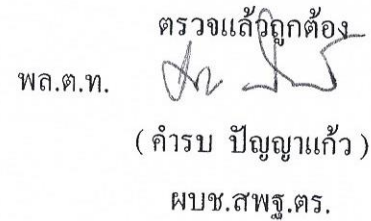 ตรวจแล้วถูกต้อง
พล.ต.ท.
( คำรบ ปัญญาแก้ว )
ผบช.สพฐ.ตร.